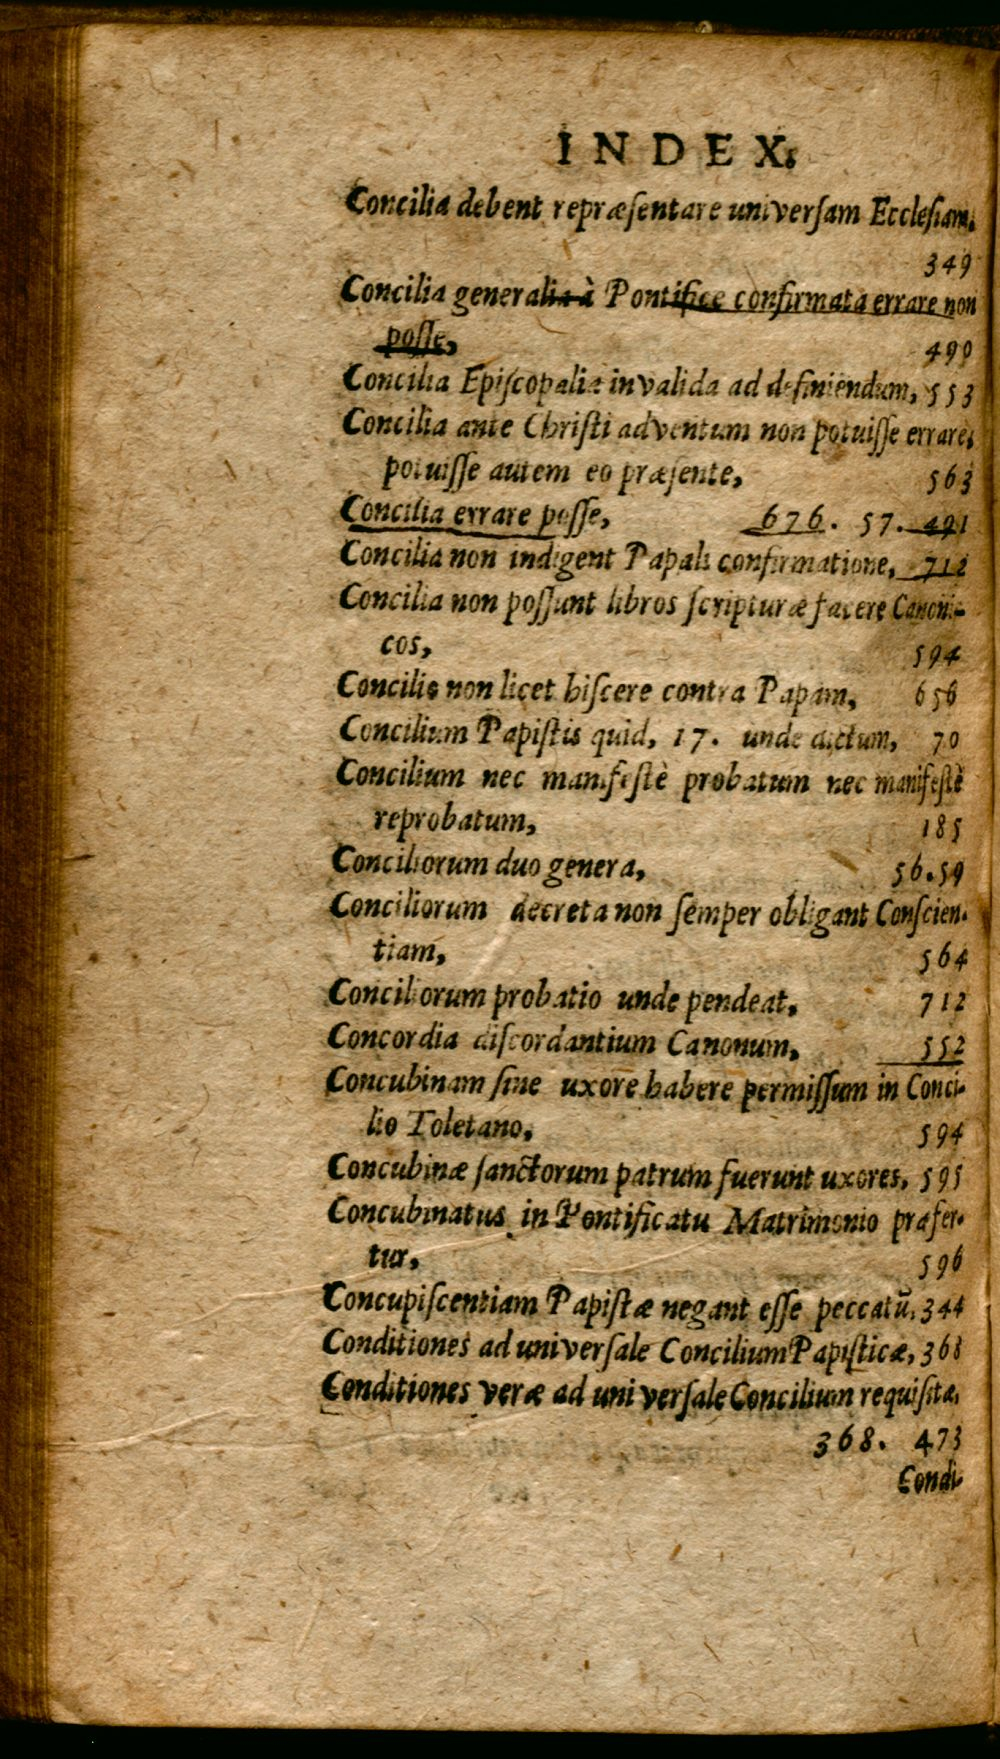 INDEX.
Concilia debent repræſentare univerſam Eccleſiam.
349
Concilia generalia à Pontifice confirmata errare non
poſſe, 490
Concilia Epiſcopalia invalida ad definiendum, 553
Concilia ante Chriſti adventum non potuiſſe errare,
potuiſſe autem eo præſente, 563
Concilia errare poſſe, 676. 57. 491
Concilia non indigent Papali confirmatione, 712
Concilia non poſſunt libros ſcripturæ facere Canoni-
cos, 594
Concilio non licet hiſcere contra Papam, 656
Concilium Papiſtis quid, 17. unde dictum, 70
Concilium nec manifeſtè probatum nec manifeſtè
reprobatum, 185
Conciliorum duo genera, 56.59
Conciliorum decreta non ſemper obligant Conſcien-
tiam, 564
Conciliorum probatio unde pendeat, 712
Concordia diſcordantium Canonum, 552
Concubinam ſine uxore habere permiſſum in Conci-
lio Toletano, 594
Concubinæ ſanctorum patrum fuerunt uxores, 595
Concubinatus in Pontificatu Matrimonio præfer-
tur, 596
Concupiſcentiam Papiſtæ negant eſſe peccatū, 344
Conditiones ad univerſale Concilium Papiſticæ, 368
Conditiones veræ ad univerſale Concilium requiſitæ,
368. 473
Condi-